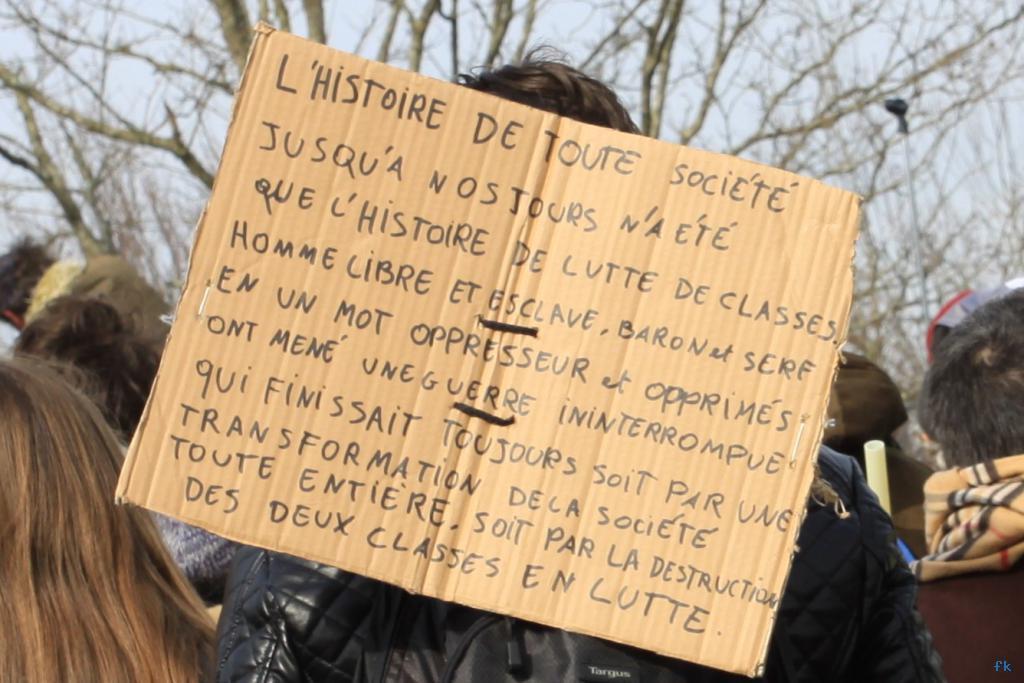 L'HISTOIRE DE TOUTE SOCIÉTÉ
JUSQU'A NOS JOURS N'A ÉTÉ
QUE L'HISTOIRE DE LUTTE DE CLASSES
HOMME LIBRE ET ESCLAVE, BARON et SERF
EN UN MOT OPPRESSEUR et OPPRIMÉS
ONT MENÉ UNE GUERRE ININTERROMPUE
QUI FINISSAIT TOUJOURS SOIT PAR UNE
TRANSFORMATION DE LA SOCIÉTÉ
TOUTE ENTIÈRE, SOIT PAR LA DESTRUCTION
DES DEUX CLASSES EN LUTTE.
Targus
fk